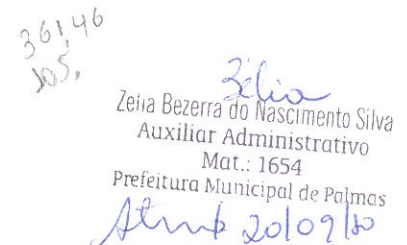 361,46
105,
Zélia
Zelia Bezerra do Nascimento Silva
Auxiliar Administrativo
Mat.: 1654
Prefeitura Municipal de Palmas
20/09/